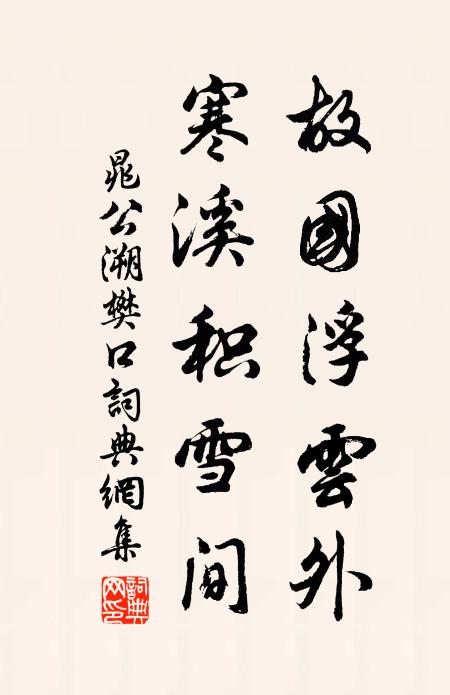 故國浮雲外
寒溪积雪間
晁公溯樊口詞典網集
詞典網印